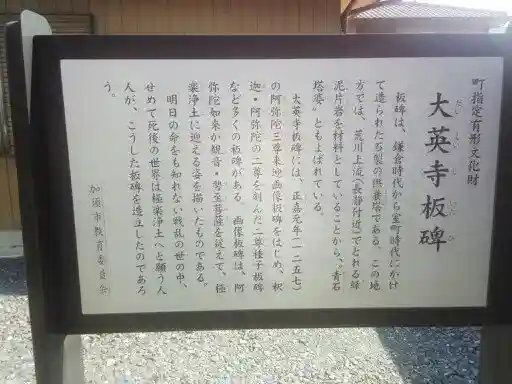 町指定有形文化財
だいえいじいたび
大英寺板碑
板碑は、鎌倉時代から室町時代にかけ
て造られた石製の供養塔である。この地
方では、荒川上流(長瀞付近)でとれる緑
泥片岩を材料としていることから、"青石
塔婆"ともよばれている。
大英寺板碑には、正嘉元年(一二五七)
の阿弥陀三尊来迎画像板碑をはじめ、釈
迦・阿弥陀の二尊を刻んだ二尊種子板碑
など多くの板碑がある。画像板碑は、阿
弥陀如来が観音・勢至菩薩を従えて、極
楽浄土に迎える姿を描いたものである。
明日の命をも知れない戦乱の世の中、
せめて死後の世界は極楽浄土へと願う人
人が、こうした板碑を造立したのであろ
う。
加須市教育委員会